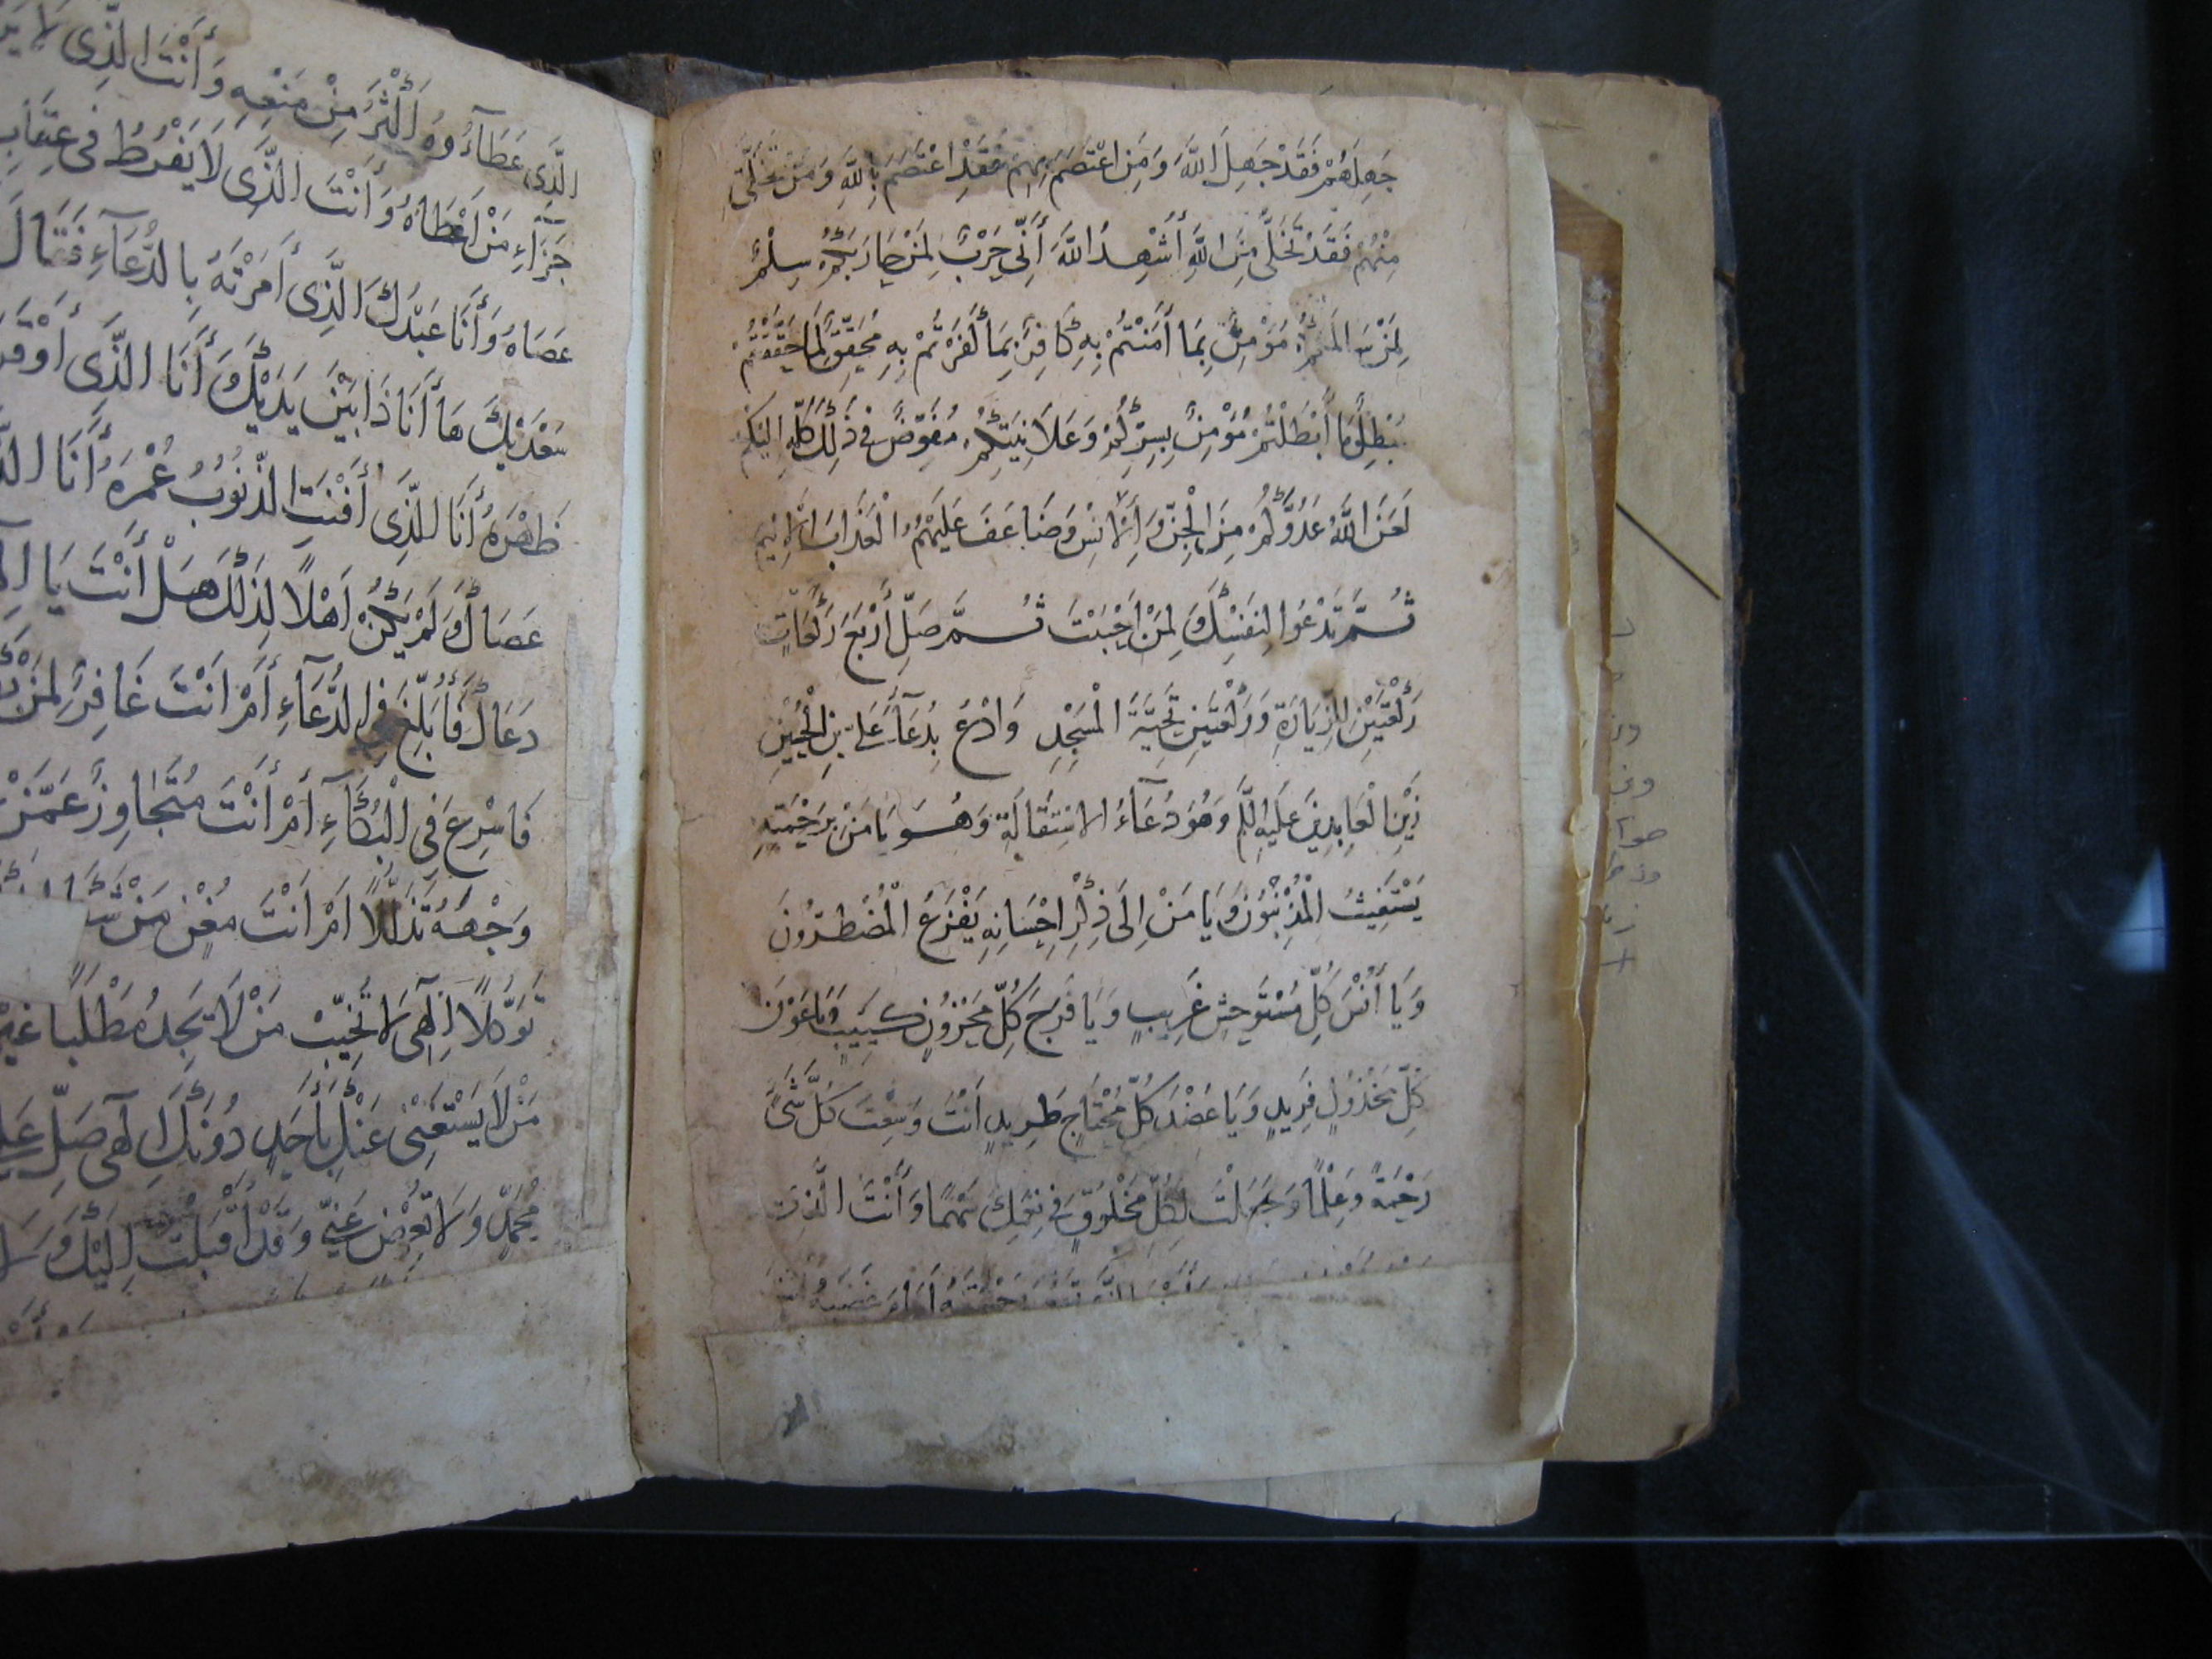 جَهِلَهُمْ فَقَدْ جَهِلَ اللَّهَ وَمَنِ اعْتَصَمَ بِهِمْ فَقَدِ اعْتَصَمَ بِاللَّهِ وَمَنْ تَخَلَّى
مِنْهُمْ فَقَدْ تَخَلَّى مِنَ اللَّهِ أُشْهِدُ اللَّهَ أَنِّي حَرْبٌ لِمَنْ حَارَبَكُمْ سِلْمٌ
لِمَنْ سَالَمَكُمْ مُؤْمِنٌ بِمَا أَمَنْتُمْ بِهِ كَافِرٌ بِمَا كَفَرْتُمْ بِهِ مُحَقِّقٌ لِمَا حَقَّقْتُمْ
مُبْطِلٌ لِمَا أَبْطَلْتُمْ مُؤْمِنٌ بِسِرِّكُمْ وَعَلَانِيَتِكُمْ مُفَوِّضٌ فِي ذَلِكَ كُلِّهِ إِلَيْكُمْ
لَعَنَ اللَّهُ عَدُوَّكُمْ مِنَ الْجِنِّ وَالْإِنْسِ وَضَاعَفَ عَلَيْهِمُ الْعَذَابَ الْأَلِيمَ
ثُمَّ تَدْعُوا لِنَفْسِكَ وَلِمَنْ أَحْبَبْتَ ثُمَّ صَلِّ أَرْبَعَ رَكَعَاتٍ
رَكْعَتَيْنِ لِلزِّيَارَةِ وَرَكْعَتَيْنِ تَحِيَّةَ الْمَسْجِدِ وَادْعُ بِدُعَآءِ عَلِيِّ بْنِ الْحُسَيْنِ
زَيْنِ الْعَابِدِينَ عَلَيْهِ السَّلَم وَهُوَ دُعَآءُ الِاسْتِقَالَةِ وَهُوَ يَا مَنْ بِرَحْمَتِهِ
يَسْتَغِيثُ الْمُذْنِبُونَ وَيَا مَنْ إِلَى ذِكْرِ إِحْسَانِهِ يَفْزَعُ الْمُضْطَرُّونَ
وَيَا أُنْسَ كُلِّ مُسْتَوْحِشٍ غَرِيبٍ وَيَا فَرَجَ كُلِّ مَحْزُونٍ كَئِيبٍ وَيَا عَوْنَ
كُلِّ مَخْذُولٍ فَرِيدٍ وَيَا عَضُدَ كُلِّ مُحْتَاجٍ طَرِيدٍ أَنْتَ وَسِعْتَ كُلَّ شَيْءٍ
رَحْمَةً وَعِلْمًا وَجَعَلْتَ لِكُلِّ مَخْلُوقٍ فِي نِعَمِكَ سَهْمًا وَأَنْتَ الَّذِي
وَأَنْتَ الَّذِي لَا
الَّذِي عَطَآءُوهُ أَكْثَرُ مِنْ مَنْعِهِ
جَزَآءِ مَنْ أَعْطَاهُ وَأَنْتَ الَّذِي لَا يَفْرُطُ فِي عِقَابِ
عَصَاهُ وَأَنَا عَبْدُكَ الَّذِي أَمَرْتَهُ بِالدُّعَآءِ فَقَالَ
سَعْدَيْكَ هَا أَنَا ذَا بَيْنَ يَدَيْكَ وَأَنَا الَّذِي أَوْقَرَ
ظَهْرَهُ أَنَا الَّذِي أَفْنَتِ الذُّنُوبُ عُمْرَهُ أَنَا
عَصَاكَ وَلَمْ يَكُنْ أَهْلًا لِذَلِكَ هَلْ أَنْتَ يَا
دَعَاكَ فَأُبْلِغَ فِي الدُّعَآءِ أَمْ أَنْتَ غَافِرٌ لِمَنْ
فَأُسْرِعَ فِي الْبُكَآءِ أَمْ أَنْتَ مُتَجَاوِزٌ عَمَّنْ
وَجْهَهُ تَذَلُّلًا أَمْ أَنْتَ مُغْنٍ مَنْ
تَوَكُّلًا إِلَهِي لَا تُخَيِّبْ مَنْ لَا يَجِدُ مُطْلِبًا غَيْرَ
مَنْ لَا يَسْتَغْنِي عَنْكَ بِأَحَدٍ دُونَكَ إِلَهِي صَلِّ عَلَى
مُحَمَّدٍ وَلَا تُعْرِضْ عَنِّي وَقَدْ أَقْبَلْتُ إِلَيْكَ وَ